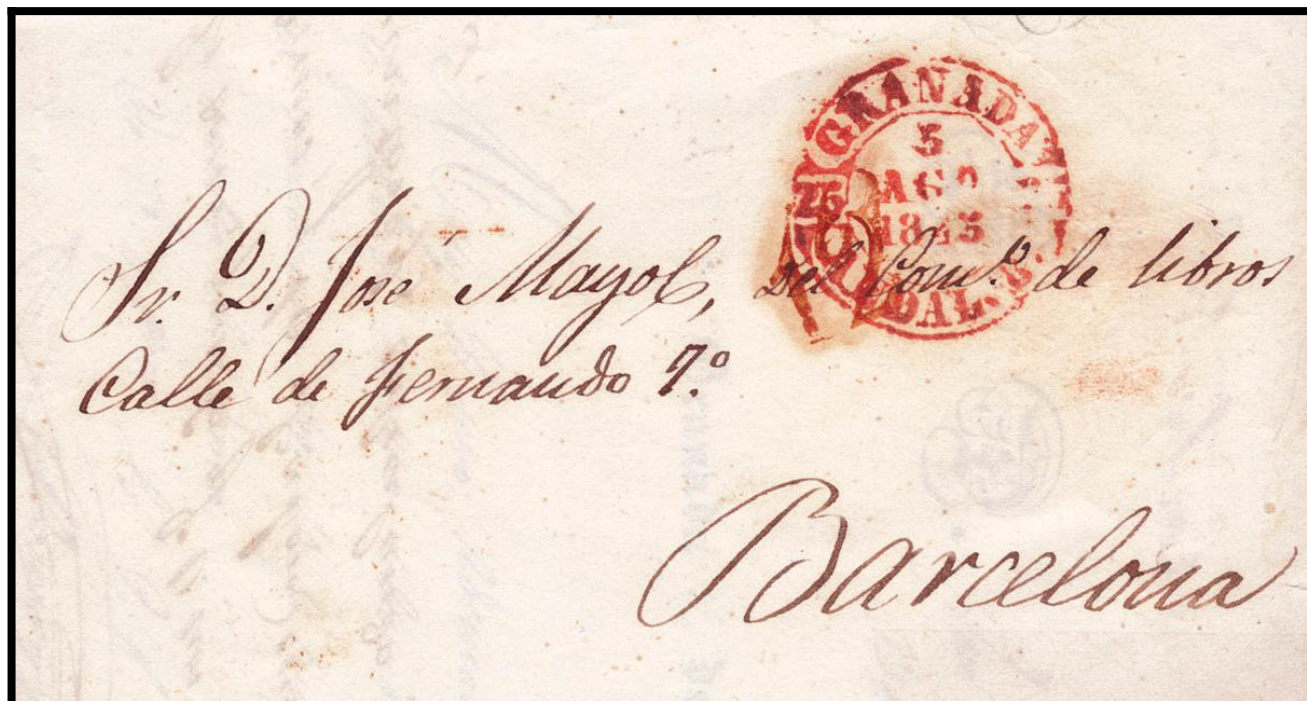 GRANADA
5
AGO
1845
25
Sr. D. José Mayol, del Com.o de libros
Calle de Fernando 7.o
Barcelona